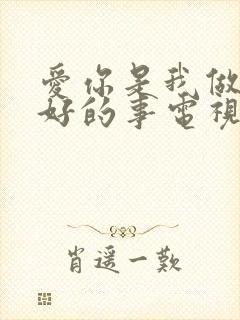 愛你是我做
好的事電視
肖遥一歎